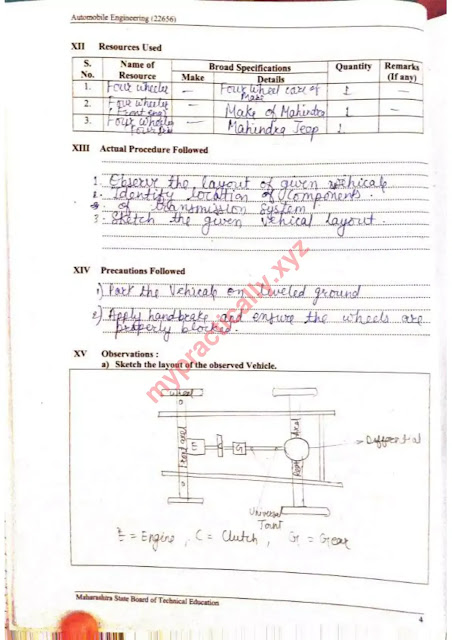 Automobile Engineering (22656)
XII Resources Used
S. No. Name of Resource Broad Specifications Quantity Remarks (If any)
Make Details
1. Four wheeler — Four wheel care of Make 1 —
2. Four wheeler (Front eng) — Make of Mahindra 1 —
3. Four wheeler — Mahindra Jeep 1
XIII Actual Procedure Followed
1. Observe the layout of given vehicale
2. Identify location of Components
of transmission system
3. Sketch the given vehical layout.
XIV Precautions Followed
1) Park the Vehicale on leveled ground
2) Apply handbrake and ensure the wheels are
properly blocked.
XV Observations :
a) Sketch the layout of the observed Vehicle.
Wheel
Front axel
E
C
G
Axel
Differential
Universal
Joint
E = Engine, C = Clutch, G = Gear
Maharashtra State Board of Technical Education
4
mypractically.xyz